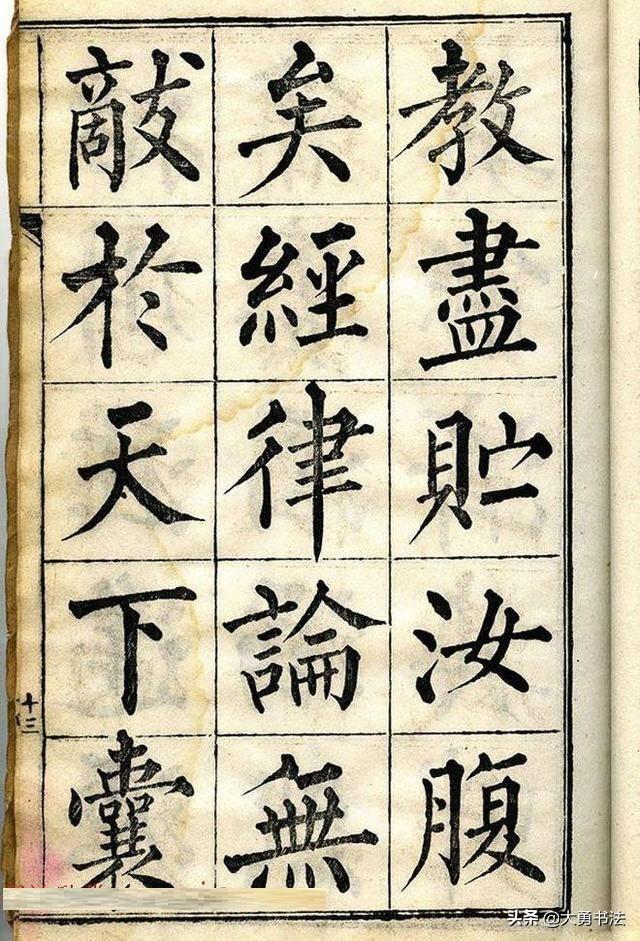 教盡貯汝腹
矣經律論無
敵於天下囊
十三
头条 @大勇书法